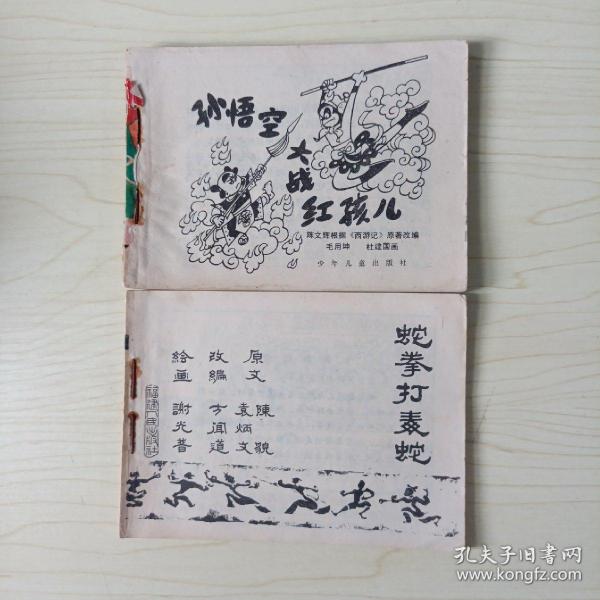 孙悟空
大战
红孩儿
陈文辉根据《西游记》原著改编
毛用坤 杜建国画
少年儿童出版社
蛇拳打毒蛇
原文 陳貌
改编 袁炳文
方闻道
绘画 謝光普
福建人民出版社
孔夫子旧书网
www.kongfz.com